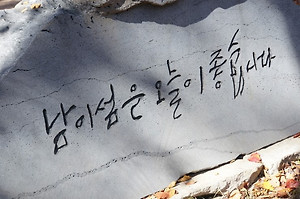 남이섬은 오늘이 좋습니다